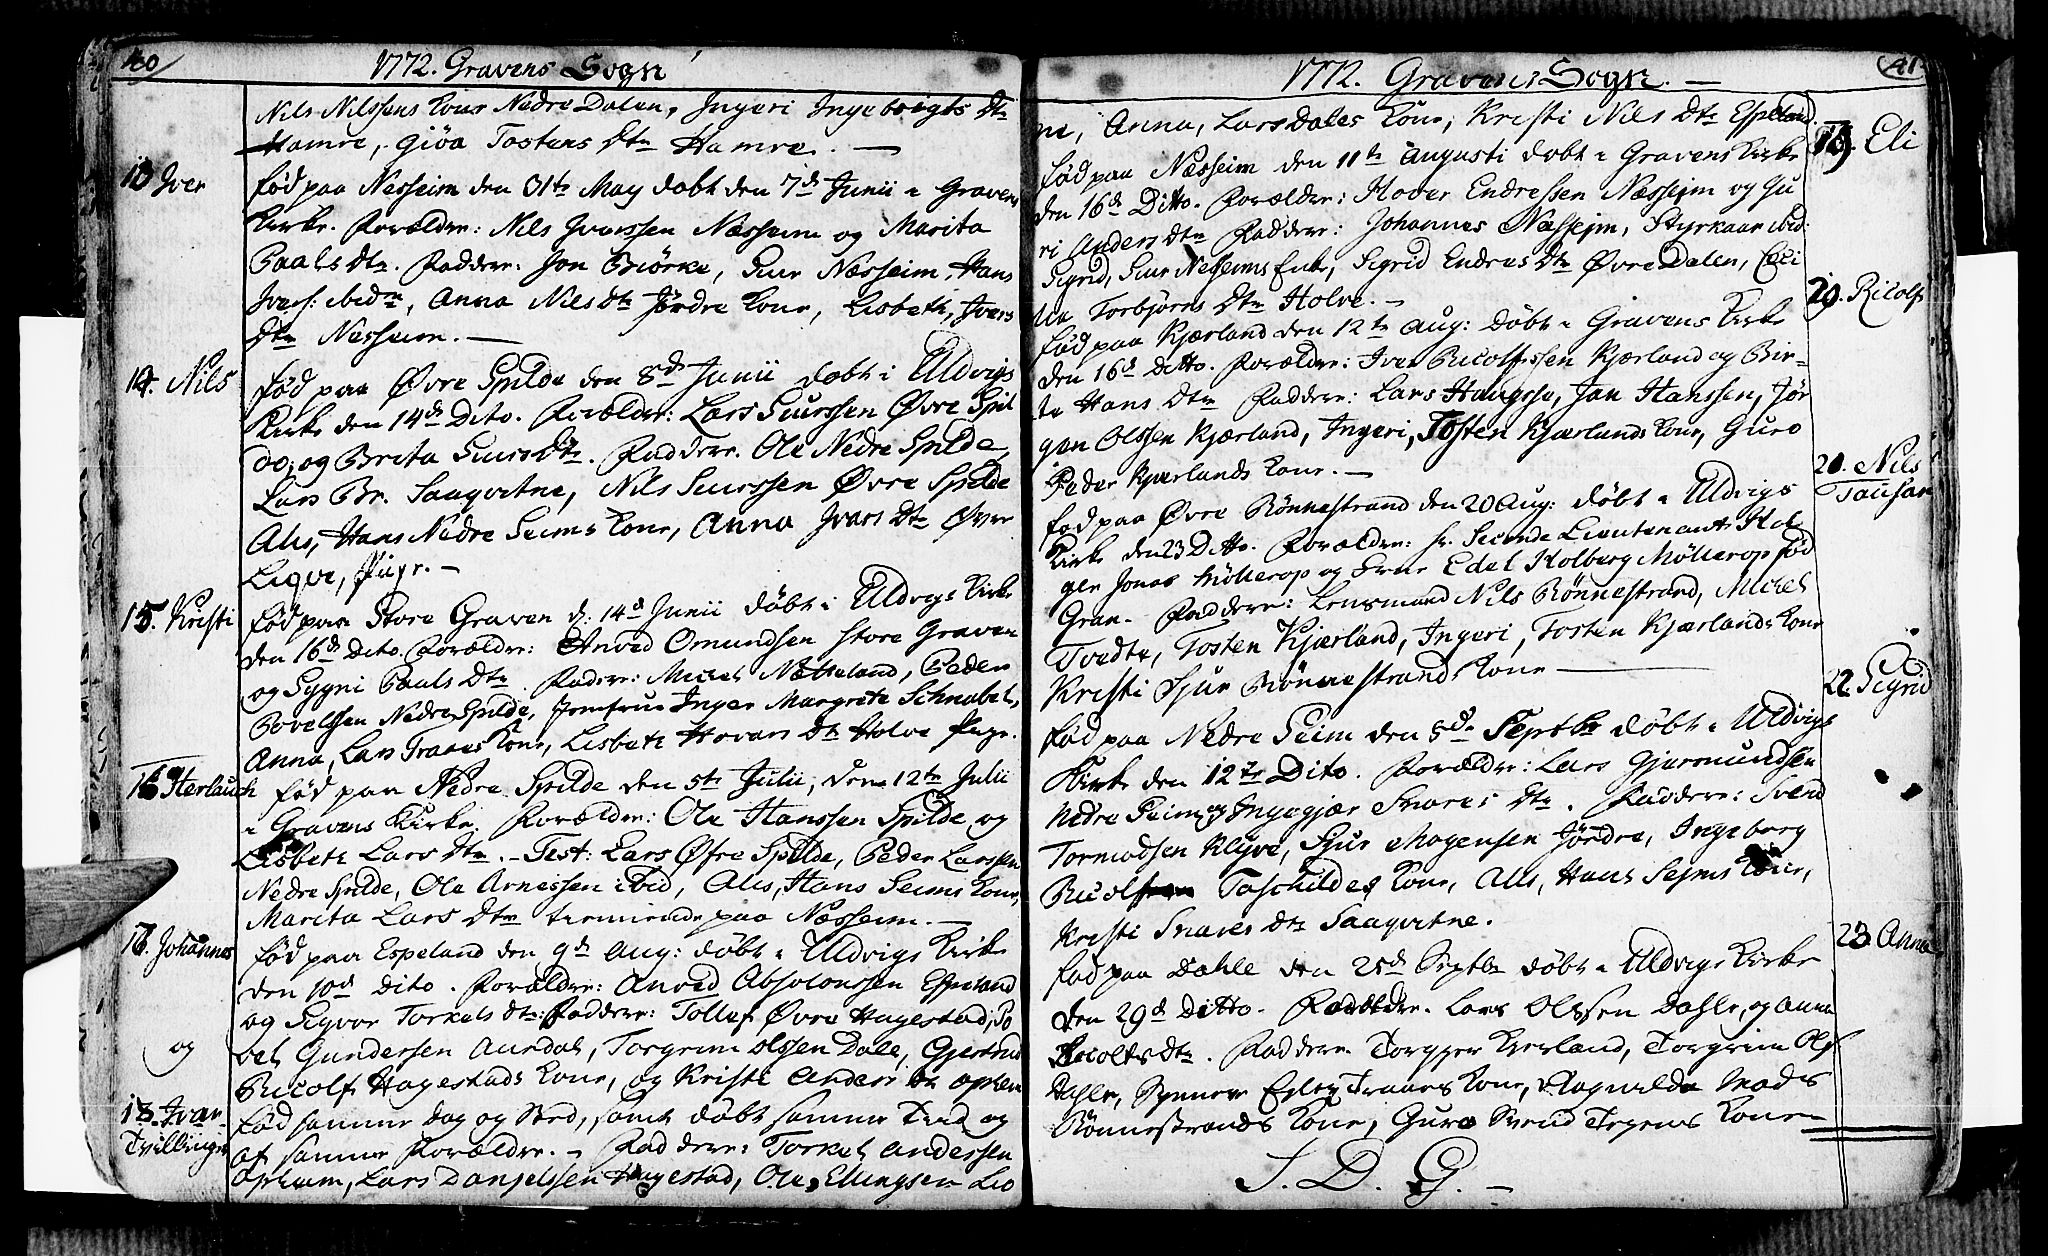 40
1772. Gravens Sogn
Nils Nilssens Kone Nedre Dalen, Ingeri Ingebrigts Dtr
Hamre, Giöa Tostens Dtr Hamre. —
13 Iver
fød paa Nesheim den 31te May døbt den 7d Junii i Gravens
Kirke. Forældre: Nils Ivarssen Næsheim og Marita
Paals Dtr. Faddere: Jon Biörke, Siur Næsheim, Hans
Ivers: ibidm, Anna Nils Dtr Jördre Kone, Lisbeth, Ivers
Dtr Nesheim. —
14. Nils
fød paa Øvre Spilde den 8d Junii døbt i Uldvigs
Kirke den 14d Dito. Forældre: Lars Siurssen Øvre Spil
de, og Brita Siurs Dtr. Faddere. Ole Nedre Spilde,
Lars Br. Saaqvitne, Nils Siurssen Øvre Spilde
Alis, Hans Nedre Seims Kone, Anna Ivars Dtr Øvre
Leqve, Pige. —
15. Kristi
fød paa Store Graven d: 14d Junii døbt i Uldvigs Kirke
den 16d Dito. Forældre: Anved Omundsen Store Graven
og Sygni Paals Dtr. Faddere: Michel Nætteland, Peder
Povelssen Nedre Spilde, Jomfrue Inger Margrete Schnabel,
Anna, Lars Traaes Kone, Lisbeth Hovars Dtr Holve Pige.
16 Herlauch
fød paa Nedre Spilde den 5te Julii, den 12te Julii
i Gravens Kirke. Forældre: Ole Hanssen Spilde og
Lisbeth Lars Dtr. - Test: Lars Øfre Spilde, Peder Larssen
Nedre Spilde, Ole Arnessen ibid, Alis, Hans Seims Kone,
Marita Lars Dtr tienende paa Næsheim. —
Johannes
fød paa Espeland den 9d Aug: døbt i Uldvigs Kirke
den 10d Dito. Forældre: Anved Absolonssen Espeland
og Sygvor Torkels Dtr: Faddere: Tollef Øvre Hagestad, Po
vel Gundersen Aurdal, Torgrim Olssen Dale, Gjertrud
og
Ricolf Hagestads Kone, og Kristi Anders Dtr Ophem
18. Ivar
Tvillinger
fød samme Dag og Sted, samt døbt samme Tiid og
af samme Forældre. — Faddere: Torkel Anderssen
Ophem, Lars Danjelssen Hagestad, Ole Ellingsen Leo
41
1772. Gravens Sogn. —
ne, Anna, Lars Dales Kone, Kristi Nils Dtr Espeland.
19. Eli
fød paa Næsheim den 11te Augusti døbt i Gravens Kirke
den 16d Ditto. Forældre: Hover Endressen Næsheim og Gu
ri Anders Dtr Faddere: Johannes Næshejm, Styrkaar ibid:
Sigrid, Siur Neseims Enke, Sigrid Endres Dtr Øvre Dalen, Ceci
lia Torbjörns Dtr Holve. —
20. Ricolf
fød paa Kjærland den 12te Aug: døbt i Gravens Kirke
den 16d Ditto. Forældre: Iver Ricolfssen Kjærland og Bir-
te Hans Dtr Faddere: Lars Haugse, Jan Hanssen, Jör
gen Olssen Kjærland, Ingeri, Tosten Kjærlands Kone, Guro
Peder Kjærlands Kone. —
21. Nils
fød paa Øvre Rönnestrand den 20 Aug: døbt i Uldvigs
Kirke den 23 Ditto. Forældre: Hr. Seconde Lieutenant Hol
ger Jonas Möllerop og Frue Edel Holberg Möllerop fød
Gran. Faddere: Lensmand Nils Rönnestrand, Michel
Tvedte, Tosten Kjærland, Ingeri, Tosten Kjærlands Kone
Kristi Sjur Rönnestrands Kone —
22. Sigrid
fød paa Nedre Seim den 8de Septbr døbt i Uldvigs
Kirke den 12te Dito. Forældre: Lars Gjermundsen
Nedre Seim og Ingegjær Snares Dtr. Faddere: Svend
Tormodsen Klyve, Sjur Mogensen Jördre, Ingeborg
Ricolf Toschildes Kone, Alis, Hans Sejms Kone,
Kristi Snares Dtr Saaqvitne.
23. Anna
fød paa Dahle den 25d Septbr døbt i Uldvigs Kirke
den 29d Ditto. Forældre. Lars Olssen Dahle, og Anna
Ricolfs Dtr. Faddere. Torgjer Kierland, Torgrim Ols
Dahle, Synneve Traaes Kone, Ragnilda Mads
Rönnestrands Kone, Guro Svend Tegens Kone —
S. D. G. —